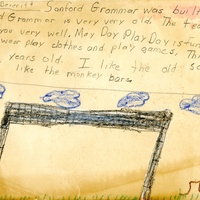 Sanford Grammar was built
d Grammar is very very old. The tea
you very well. Mey Day Play Day is fun
wear play clothes and play games. Th
years old. I like the old sc
like the monkey bars.